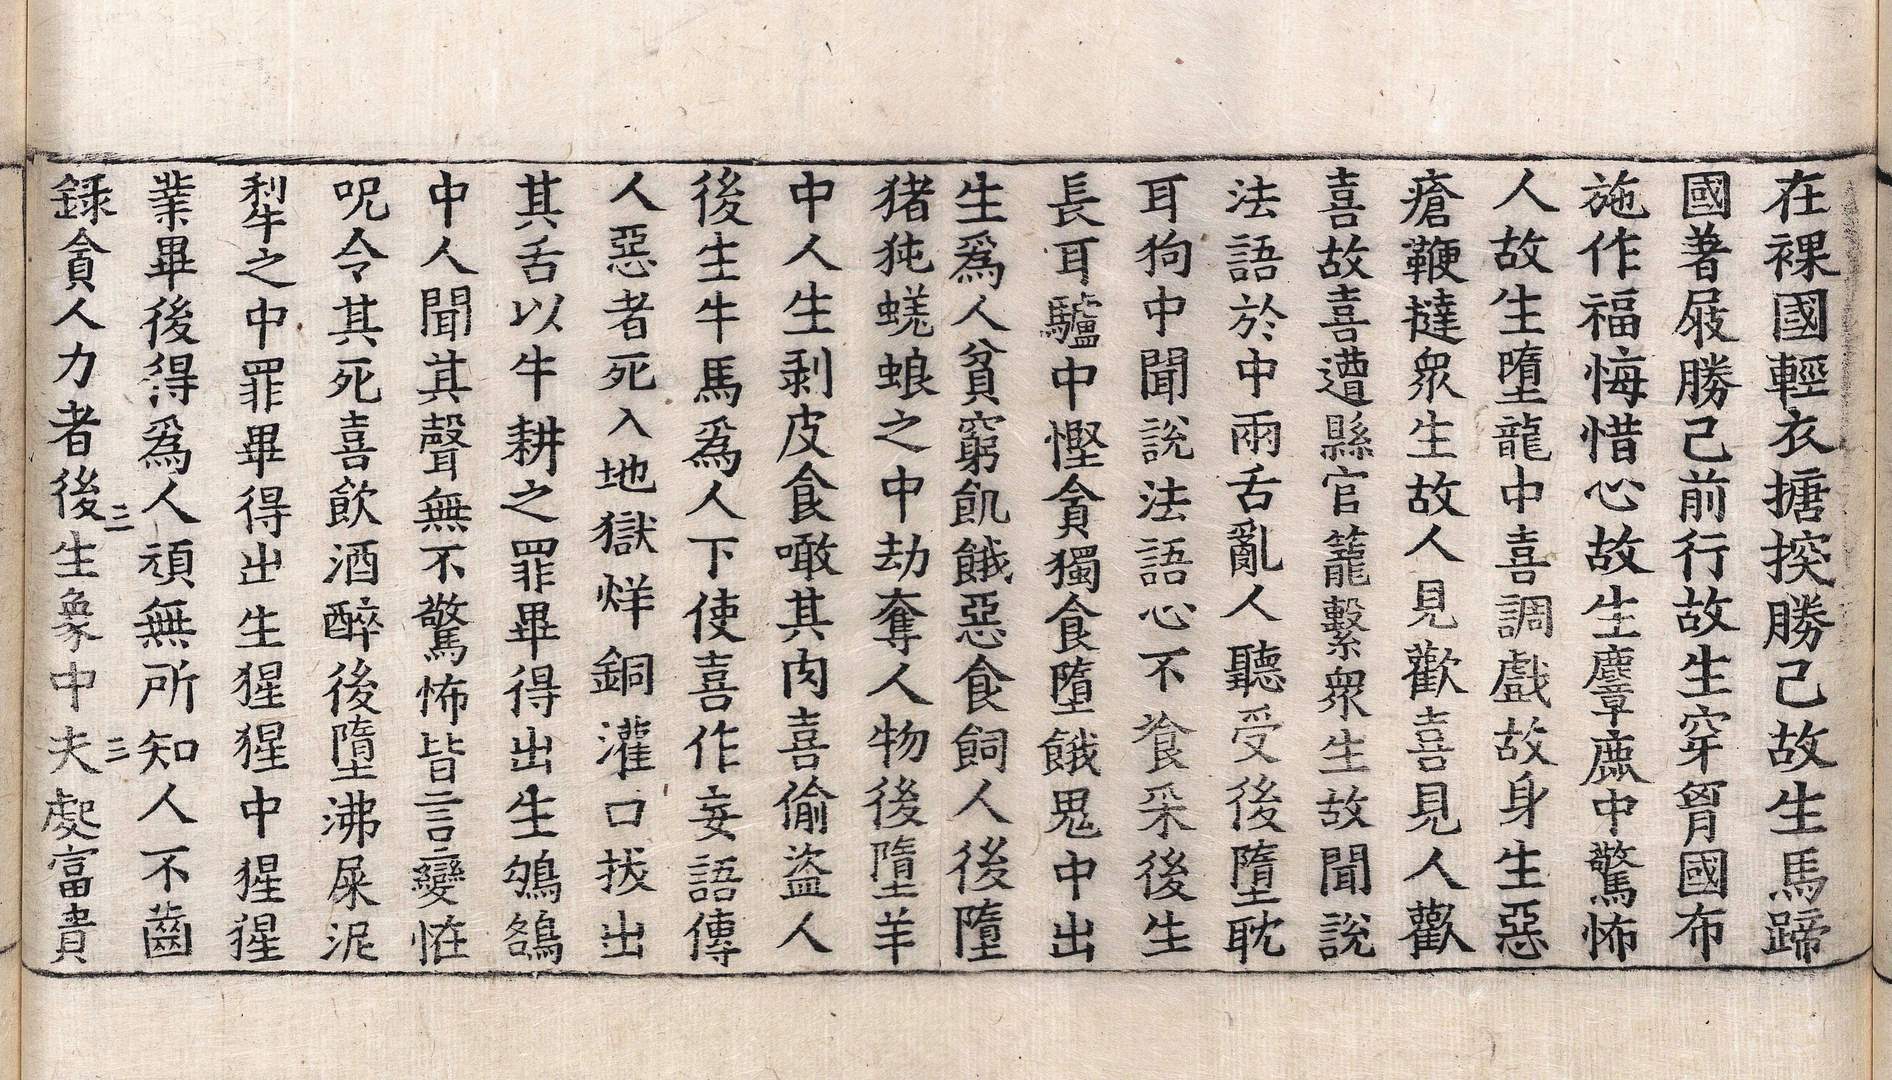 在裸國輕衣搪揬勝己故生馬蹄
國著屐勝己前行故生穿胷國布
施作福悔惜心故生麞鹿中驚怖
人故生墮龍中喜調戲故身生惡
瘡鞭撻衆生故人見歡喜見人歡
喜故喜遭縣官籠繫衆生故聞說
法語於中兩舌亂人聽受後墮耽
耳狗中聞說法語心不飡采後生
長耳驢中慳貪獨食墮餓鬼中出
生爲人貧窮飢餓惡食飼人後墮
猪㹠蜣蜋之中劫奪人物後墮羊
中人生剥皮食噉其肉喜偷盜人
後生牛馬爲人下使喜作妄語傳
人惡者死入地獄烊銅灌口拔出
其舌以牛耕之罪畢得出生鴝鵒
中人聞其聲無不驚怖皆言變恠
呪令其死喜飲酒醉後墮沸屎泥
犁之中罪畢得出生猩猩中猩猩
業畢後得爲人頑無所知人不齒
三 三
録貪人力者後生象中夫處富貴